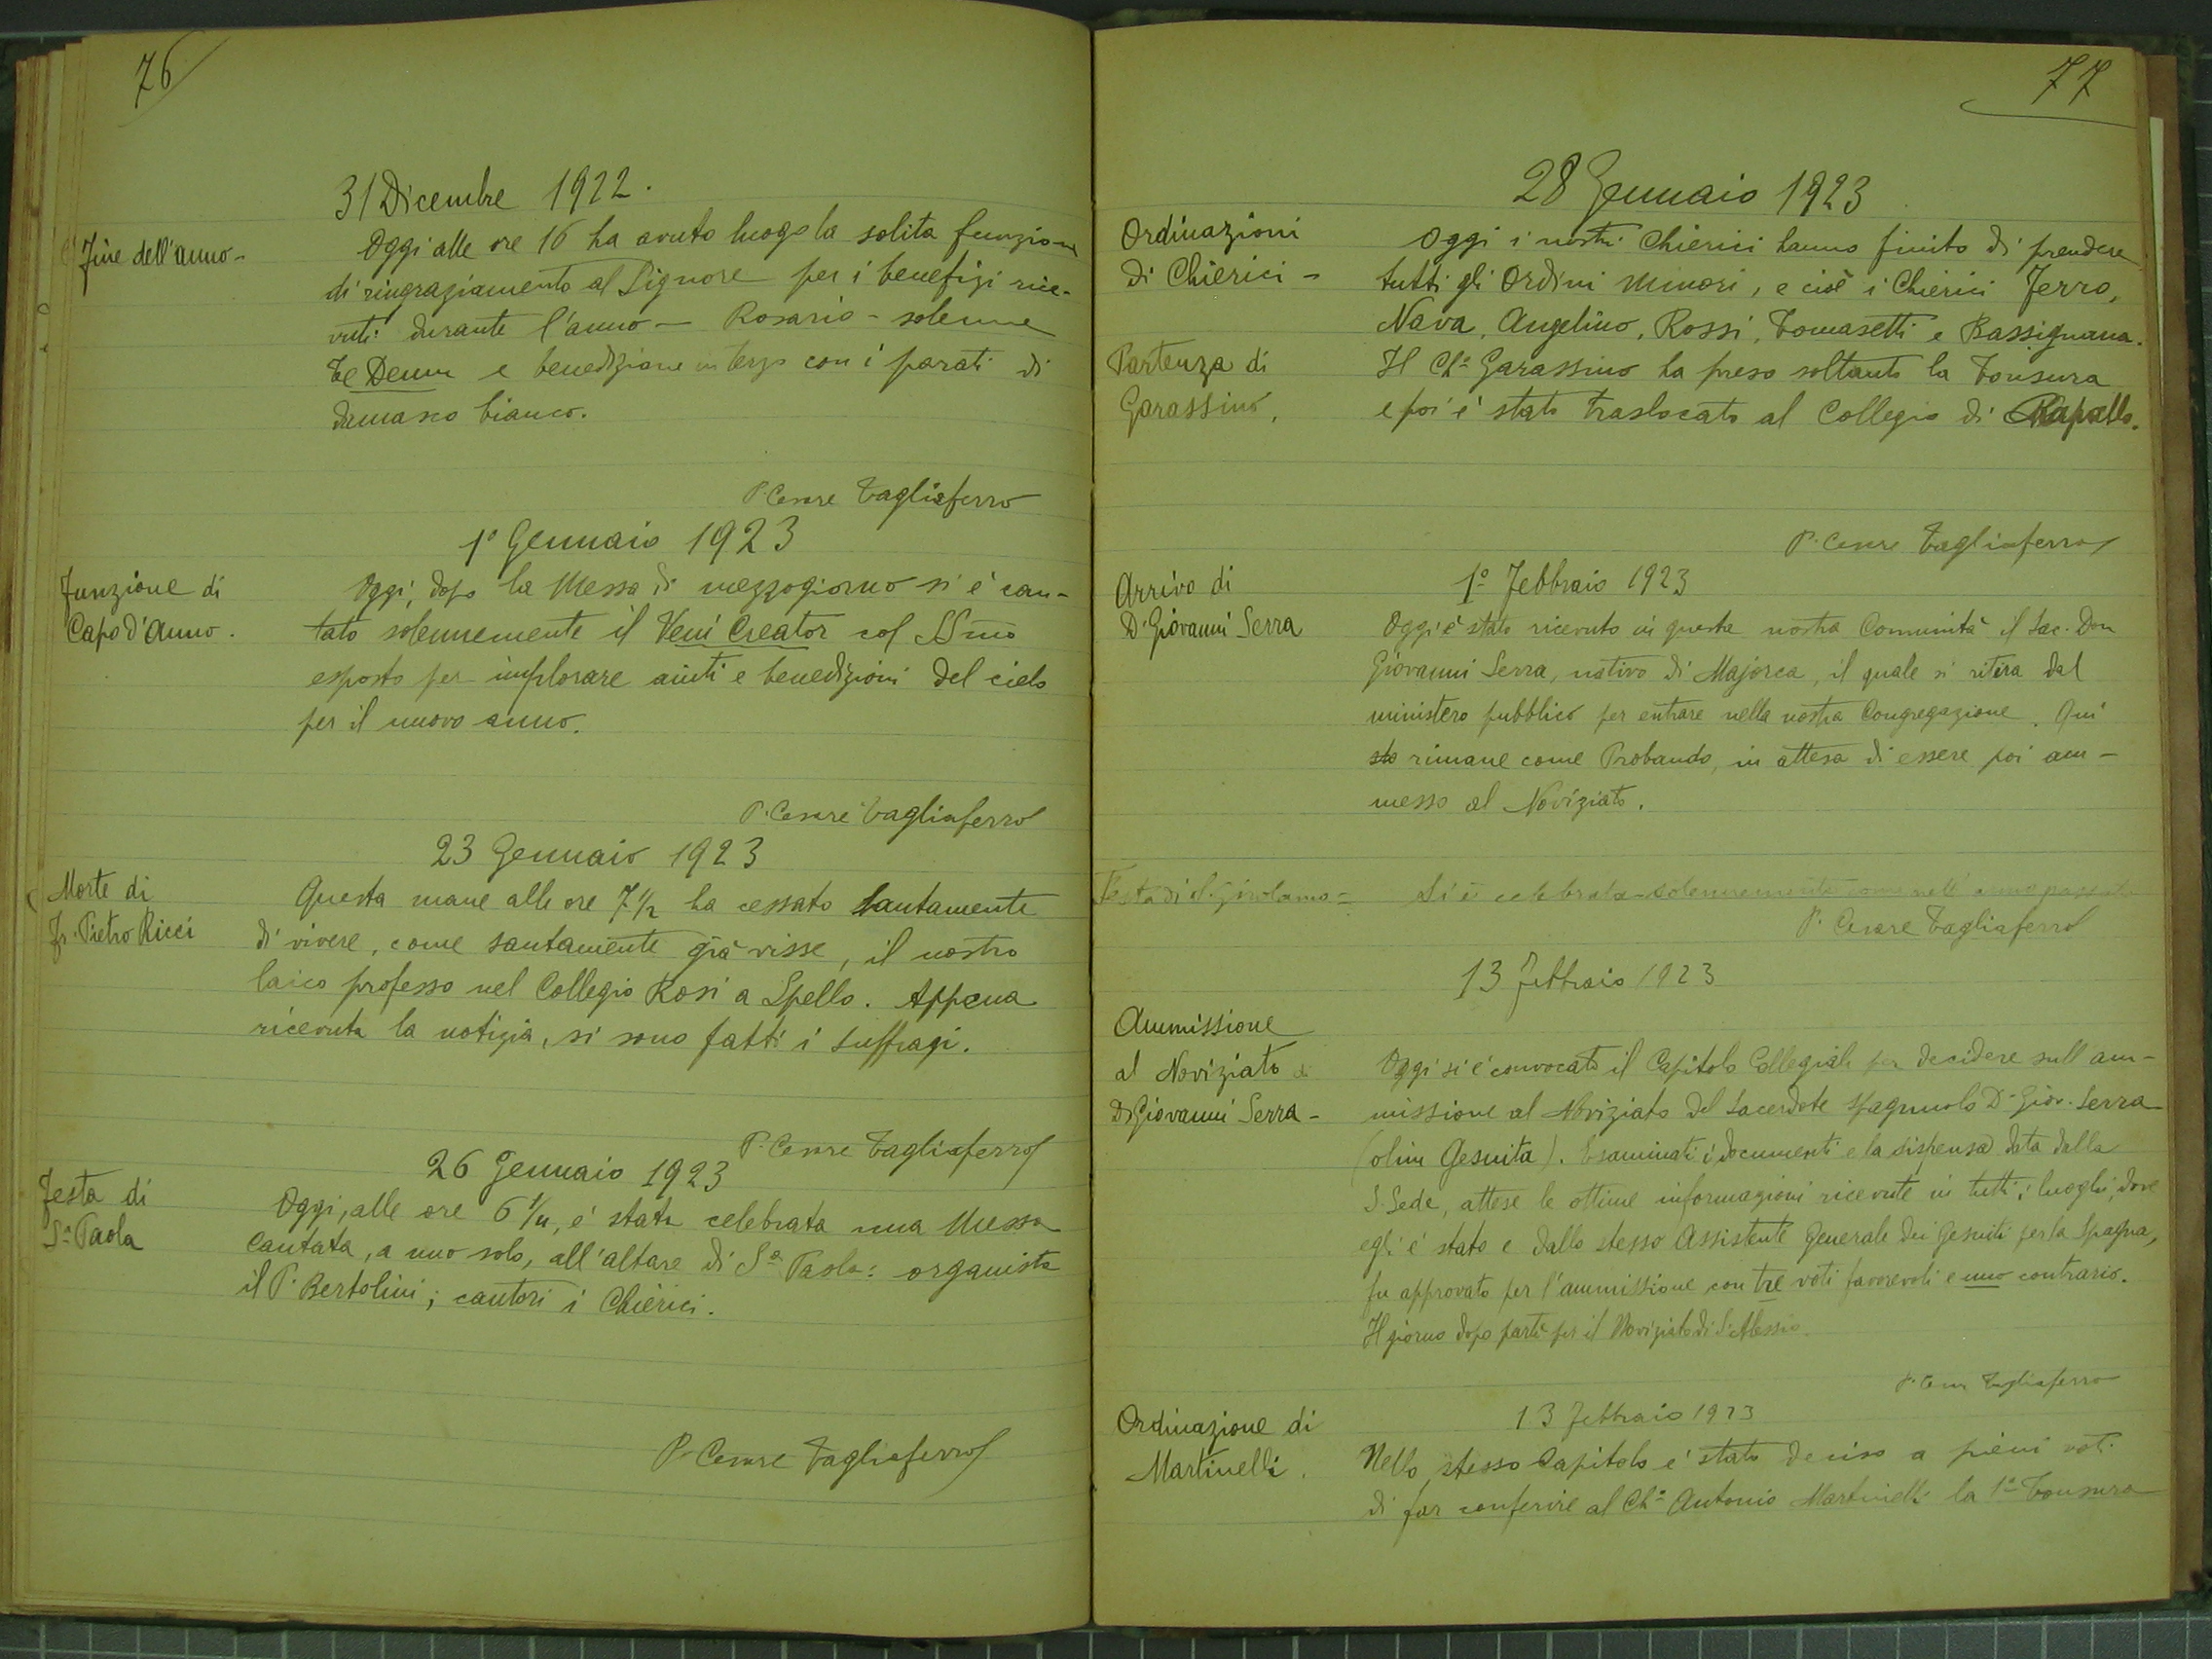 76
31 Dicembre 1922.
Fine dell'anno -
Oggi alle ore 16 ha avuto luogo la solita funzione
di ringraziamento al Signore per i benefizi rice-
vuti durante l'anno - Rosario - solenne
Te Deum e benedizione in terzo con i parati di
damasco bianco.
P. Cesare Tagliaferro
1° Gennaio 1923
Funzione di
Capo d'Anno.
Oggi, dopo la Messa di mezzogiorno si è can-
tato solennemente il Veni Creator col SSmo
esposto per implorare aiuti e benedizioni del cielo
per il nuovo anno.
P. Cesare Tagliaferro
23 Gennaio 1923
Morte di
Fr. Pietro Ricci
Questa mane alle ore 7 1/2 ha cessato santamente
di vivere, come santamente già visse, il nostro
laico professo nel Collegio Rosi a Spello. Appena
ricevuta la notizia, si sono fatti i suffragi.
P. Cesare Tagliaferro
26 Gennaio 1923
Festa di
Sa Paola
Oggi, alle ore 6 1/4, è stata celebrata una Messa
Cantata, a uno solo, all'altare di Sa Paola: organista
il P. Bertolini; cantori i Chierici.
P. Cesare Tagliaferro
77
28 Gennaio 1923
Ordinazioni
di Chierici -
Oggi i nostri Chierici hanno finito di prendere
tutti gli Ordini Minori, e cioè i Chierici Ferro,
Nava, Angelino, Rossi, Tomasetti e Bassignana.
Partenza di
Garassino,
Il Ch° Garassino ha preso soltanto la Tonsura
e poi è stato traslocato al Collegio di Rapallo.
P. Cesare Tagliaferro
1° Febbraio 1923
Arrivo di
D. Giovanni Serra
Oggi è stato ricevuto in questa nostra Comunità il Sac. Don
Giovanni Serra, nativo di Majorca, il quale si ritira dal
ministero pubblico per entrare nella nostra Congregazione. Qui
sta rimane come Probando, in attesa di essere poi am-
messo al Noviziato.
Festa di S. Girolamo = Si è celebrata solennemente come nell'anno passato
P. Cesare Tagliaferro
13 Febbraio 1923
Ammissione
al Noviziato di
D. Giovanni Serra -
Oggi si è convocato il Capitolo Collegiale per decidere sull'am-
missione al Noviziato del Sacerdote spagnuolo D. Giov. Serra
(olim Gesuita). Esaminati i documenti e la dispensa data dalla
S. Sede, attese le ottime informazioni ricevute in tutti i luoghi, dove
egli è stato e dallo stesso Assistente Generale dei Gesuiti per la Spagna,
fu approvato per l'ammissione con tre voti favorevoli e uno contrario.
Il giorno dopo partì per il Noviziato di S. Alessio.
P. Cesare Tagliaferro
13 Febbraio 1923
Ordinazione di
Martinelli.
Nello stesso Capitolo è stato deciso a pieni voti
di far conferire al Ch° Antonio Martinelli la 1a Tonsura